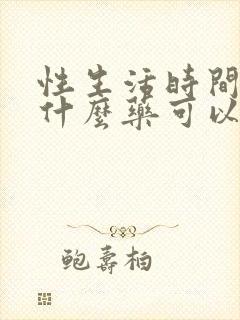 性生活時間
什麼藥可以
鲍壽柏